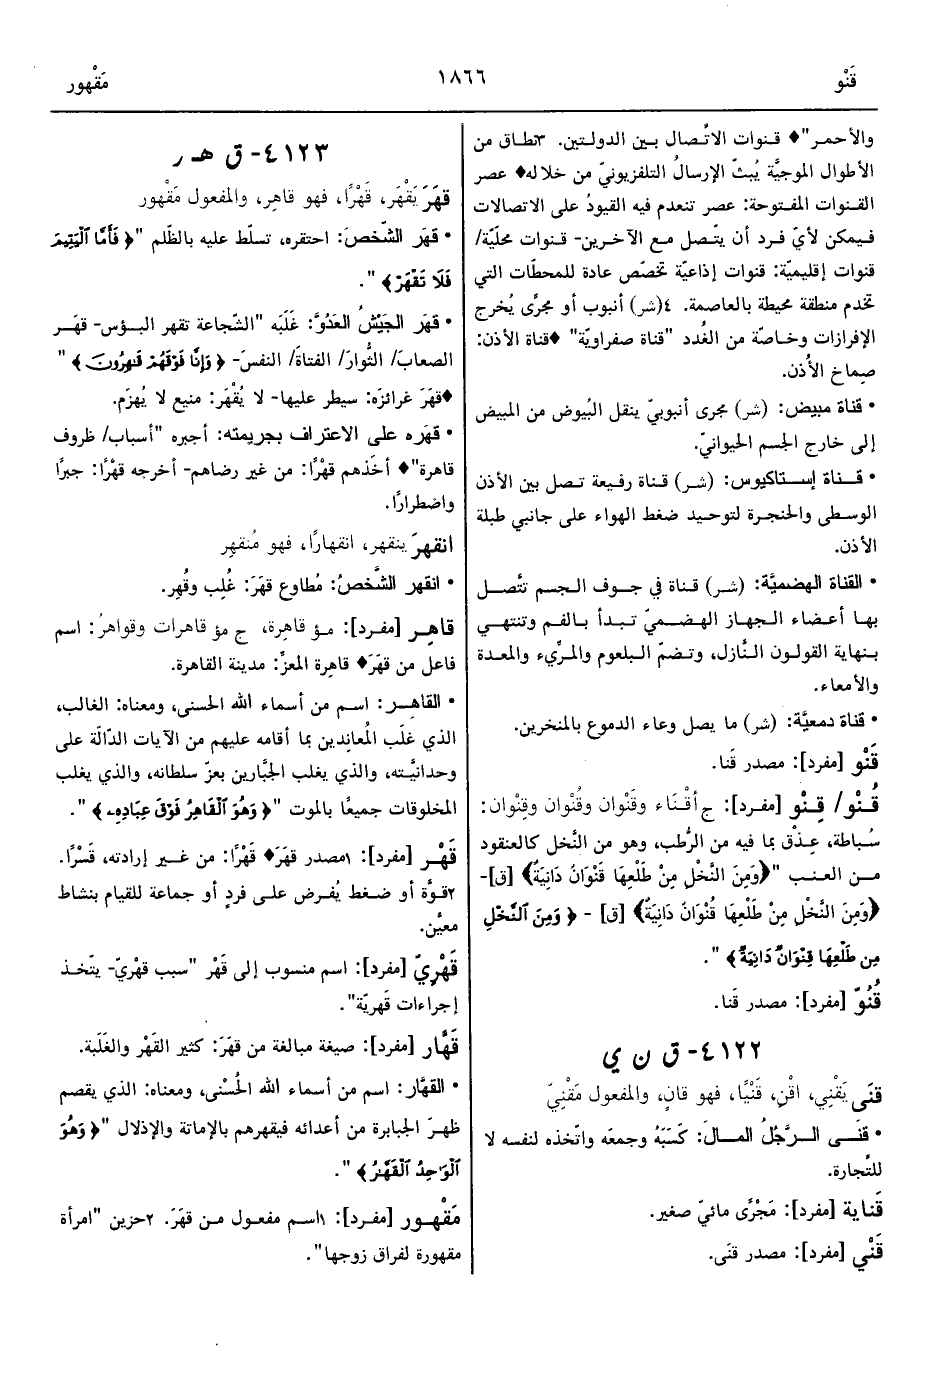 قَنْو
١٨٦٦
مَقْهور
والأحمر"♦ قنوات الاتّصال بين الدولتين. ٣نطاق من
الأطوال الموجيَّة يُبثّ الإرسالُ التلفزيونيّ من خلاله♦ عصر
القنوات المفتوحة: عصر تنعدم فيه القيودُ على الاتصالات
فيمكن لأيّ فرد أن يتّصل مع الآخرين- قنوات محلّيّة/
قنوات إقليميّة: قنوات إذاعيّة تخصّص عادة للمحطّات التي
تخدم منطقة محيطة بالعاصمة. ٤(شر) أنبوب أو مجرًى يُخرج
الإفرازات وخاصّة من الغُدد "قناة صفراويّة" ♦قناة الأذن:
صِماخ الأُذن.
• قناة مبيض: (شر) مجرى أنبوبيّ ينقل البُيوض من المبيض
إلى خارج الجسم الحيوانيّ.
• قناة إستاكيوس: (شر) قناة رفيعة تصل بين الأذن
الوسطى والحنجرة لتوحيد ضغط الهواء على جانبي طبلة
الأذن.
• القناة الهضميَّة: (شر) قناة في جوف الجسم تتَّصل
بها أعضاء الجهاز الهضميّ تبدأ بالفم وتنتهي
بنهاية القولون النَّازل، وتضمّ البلعوم والمرِّيء والمعدة
والأمعاء.
• قناة دمعيَّة: (شر) ما يصل وعاء الدموع بالمنخرين.
قَنْو [مفرد]: مصدر قَنا.
قُنْو/ قِنو [مفرد]: ج أقْناء وقَنْوان وقُنْوان وقِنْوان:
سُباطة، عِذْق بما فيه من الرُّطب، وهو من النَّخل كالعنقود
من العنب "﴿وَمِنَ النَّخْلِ مِنْ طَلْعِهَا قَنْوَانٌ دَانِيَةٌ﴾ [ق]-
﴿وَمِنَ النَّخْلِ مِنْ طَلْعِهَا قُنْوَانٌ دَانِيَةٌ﴾ [ق] - ﴿وَمِنَ النَّخْلِ
مِن طَلْعِهَا قِنْوَانٌ دَانِيَةٌ﴾ ".
قُنُوّ [مفرد]: مصدر قَنا.
٤١٢٢- ق ن ي
قنَى يَقْنِي، اقْنِ، قَنْيًا، فهو قانٍ، والمفعول مَقْنِيّ
• قنَى الرَّجُلُ المالَ: كَسَبَهُ وجمعَه واتّخذه لنفسه لا
للتِّجارة.
قَناية [مفرد]: مَجْرًى مائيّ صغير.
قَنْي [مفرد]: مصدر قنَى.
٤١٢٣- ق هـ ر
قهَرَ يَقْهَر، قَهْرًا، فهو قاهِر، والمفعول مَقْهور
• قهَر الشَّخصَ: احتقره، تسلّط عليه بالظّلم "﴿ فَأَمَّا الْيَتِيمَ
فَلَا تَقْهَرْ﴾ ".
• قهَر الجَيْشُ العَدُوَّ: غَلَبَه "الشّجاعة تقهر البؤس- قهَر
الصعابَ/ الثُّوارَ/ الفتاةَ/ النفسَ- ﴿ وَإِنَّا فَوْقَهُمْ قَاهِرُونَ ﴾ "
♦قهَرَ غرائزَه: سيطر عليها- لا يُقْهَر: منيع لا يُهزَم.
• قهَره على الاعتراف بجريمته: أجبره "أسباب/ ظروف
قاهرة"♦ أخَذَهم قهْرًا: من غير رضاهم- أخرجه قهْرًا: جبرًا
واضطرارًا.
انقهرَ ينقهر، انقهارًا، فهو مُنقهِر
• انقهر الشَّخصُ: مُطاوع قهَرَ: غُلِب وقُهِر.
قاهِر [مفرد]: مؤ قاهِرة، ج مؤ قاهرات وقواهرُ: اسم
فاعل من قهَرَ♦ قاهرة المعزِّ: مدينة القاهرة.
• القاهِر: اسم من أسماء الله الحسنى، ومعناه: الغالب،
الذي غلَب المُعاندين بما أقامه عليهم من الآيات الدّالّة على
وحدانيَّته، والذي يغلب الجبَّارين بعزّ سلطانه، والذي يغلب
المخلوقات جميعًا بالموت "﴿ وَهُوَ الْقَاهِرُ فَوْقَ عِبَادِهِ ﴾ ".
قَهْر [مفرد]: ١مصدر قهَرَ♦ قَهْرًا: من غير إرادته، قَسْرًا.
٢قوَّة أو ضغط يُفرض على فردٍ أو جماعة للقيام بنشاط
معيَّن.
قَهْرِيّ [مفرد]: اسم منسوب إلى قَهْر "سبب قهْريّ- يتّخذ
إجراءات قَهريّة".
قَهَّار [مفرد]: صيغة مبالغة من قهَرَ: كثير القَهْر والغَلَبة.
• القهَّار: اسم من أسماء الله الحُسْنى، ومعناه: الذي يقصم
ظهرَ الجبابرة من أعدائه فيقهرهم بالإماتة والإذلال "﴿ وَهُوَ
الْوَاحِدُ الْقَهَّارُ ﴾ ".
مَقْهور [مفرد]: ١اسم مفعول من قهَرَ. ٢حزين "امرأة
مقهورة لفراق زوجها".